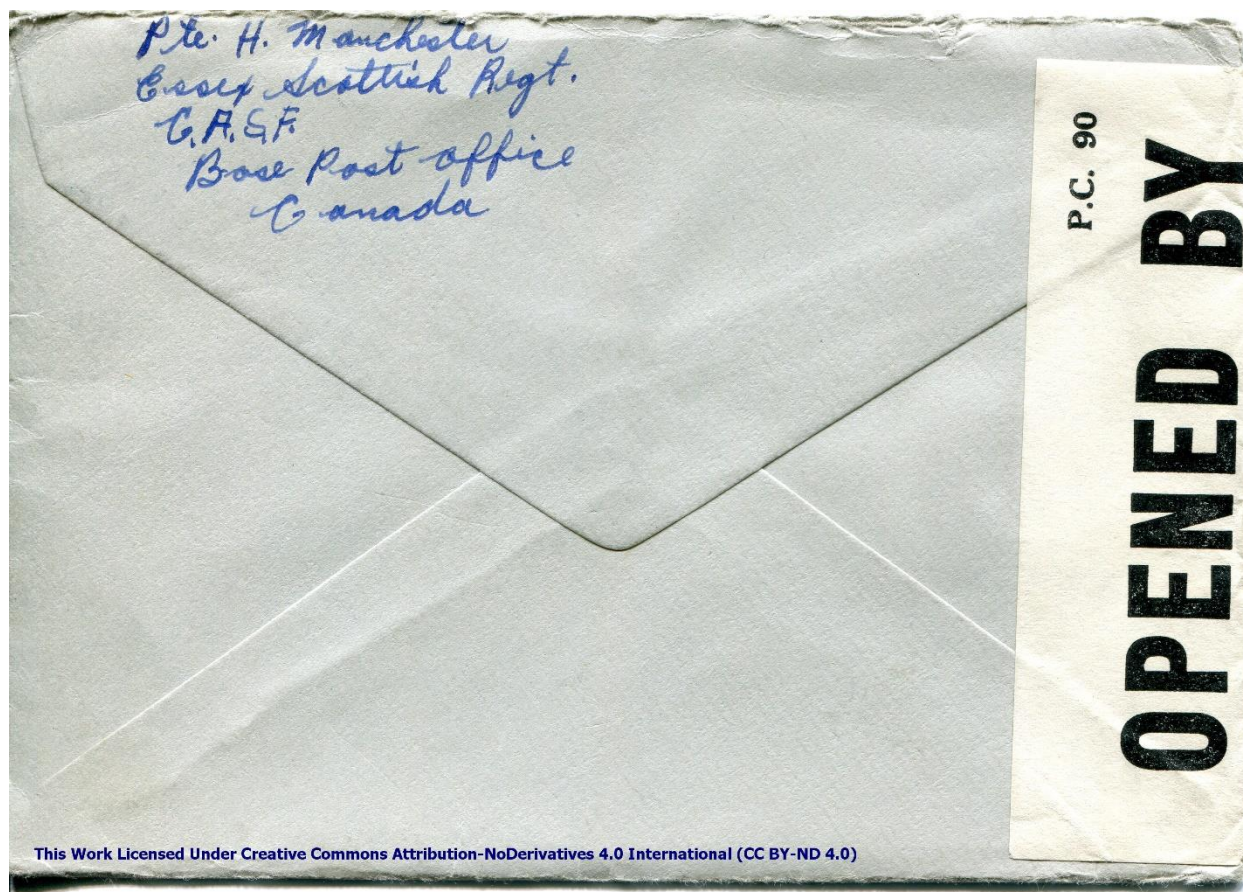 Pte. H. Manchester
Essex Scottish Regt.
C.A.S.F.
Base Post office
Canada
P.C. 90
OPENED BY
This Work Licensed Under Creative Commons Attribution-NoDerivatives 4.0 International (CC BY-ND 4.0)